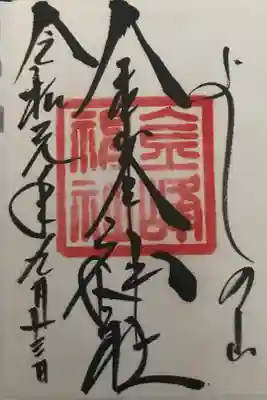 よしの山
金峯神社
令和元年九月廿三日
金峰
神社